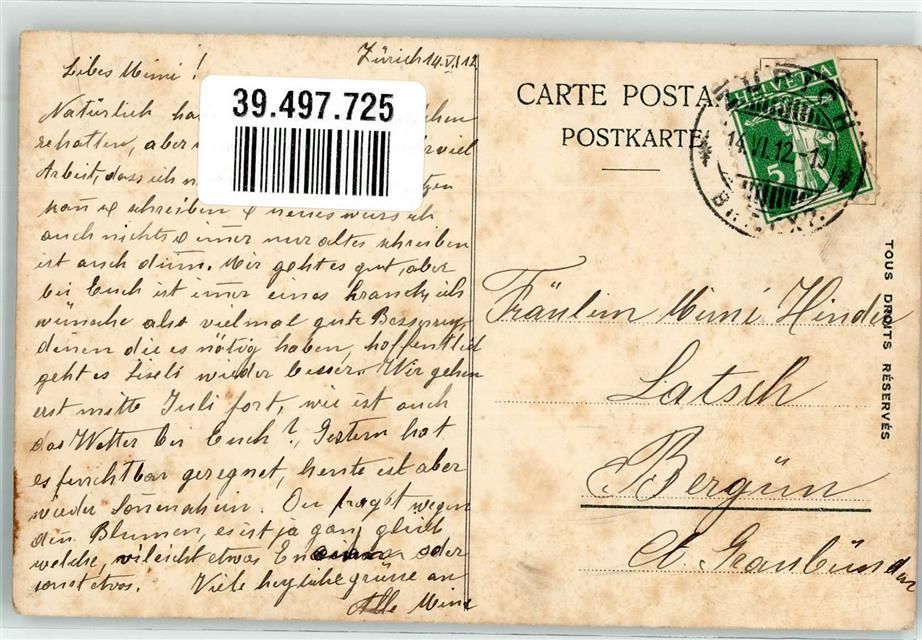 Zürich 14.VI.12
Libes Mimi!
39.497.725
Natürlich ha
erhalten, aber viel
Arbeit, dass ich n
kan & schreiben & neues weiss ich
auch nichts & imer nur altes schreiben
ist auch dum. Mir geht es gut, aber
bei Euch ist imer eines krank, ich
wünsche also vielmal gute Besserung,
denen die es nötig haben, hoffentlich
geht es Liseli wieder besser. Wir gehen
erst mitte Juli fort, wie ist auch
das Wetter bei Euch? Gestern hat
es furchtbar geregnet, heute ist aber
wieder Sonenschein. Du fragst wegen
den Blumen, es ist ja ganz gleich
welche, vileicht etwas oder
sonst etwas. Viele herzliche grüsse an
Alle Mimi
CARTE POSTA
POSTKARTE
HELVETIA
5
ZÜRICH
14.VI.12
TOUS DROITS RÉSERVÉS
Fräulein Mimi
Latsch
Bergün
Ct. Graubünden